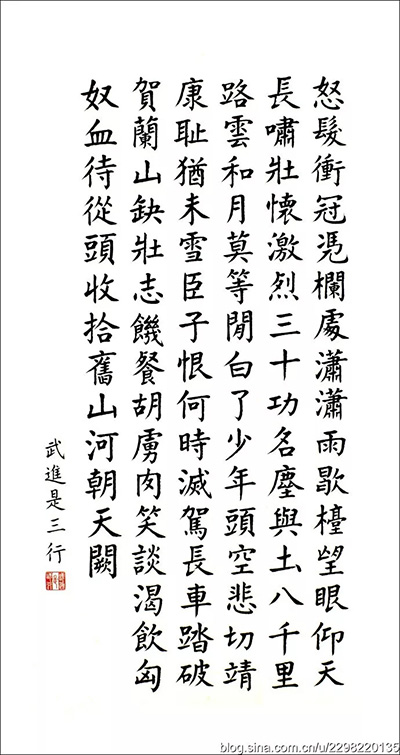 怒髮衝冠凴欄處瀟瀟雨歇檯望眼仰天
長嘯壯懷激烈三十功名塵與土八千里
路雲和月莫等閒白了少年頭空悲切靖
康耻猶未雪臣子恨何時滅駕長車踏破
賀蘭山缺壯志饑餐胡虜肉笑談渴飲匈
奴血待從頭收拾舊山河朝天闕
武進是三行
blog.sina.com.cn/u/2298220135